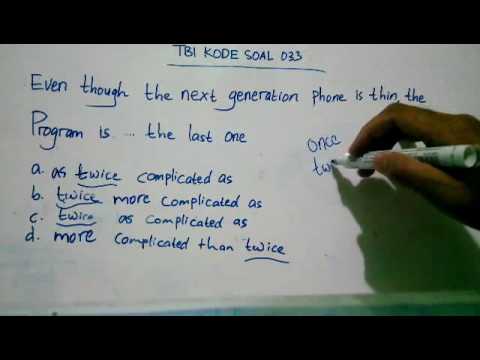 TBI KODE SOAL 033
Even though the next generation phone is thin the
Program is ... the last one
once
tw
a. as twice complicated as
b. twice more complicated as
c. twice as complicated as
d. more complicated than twice